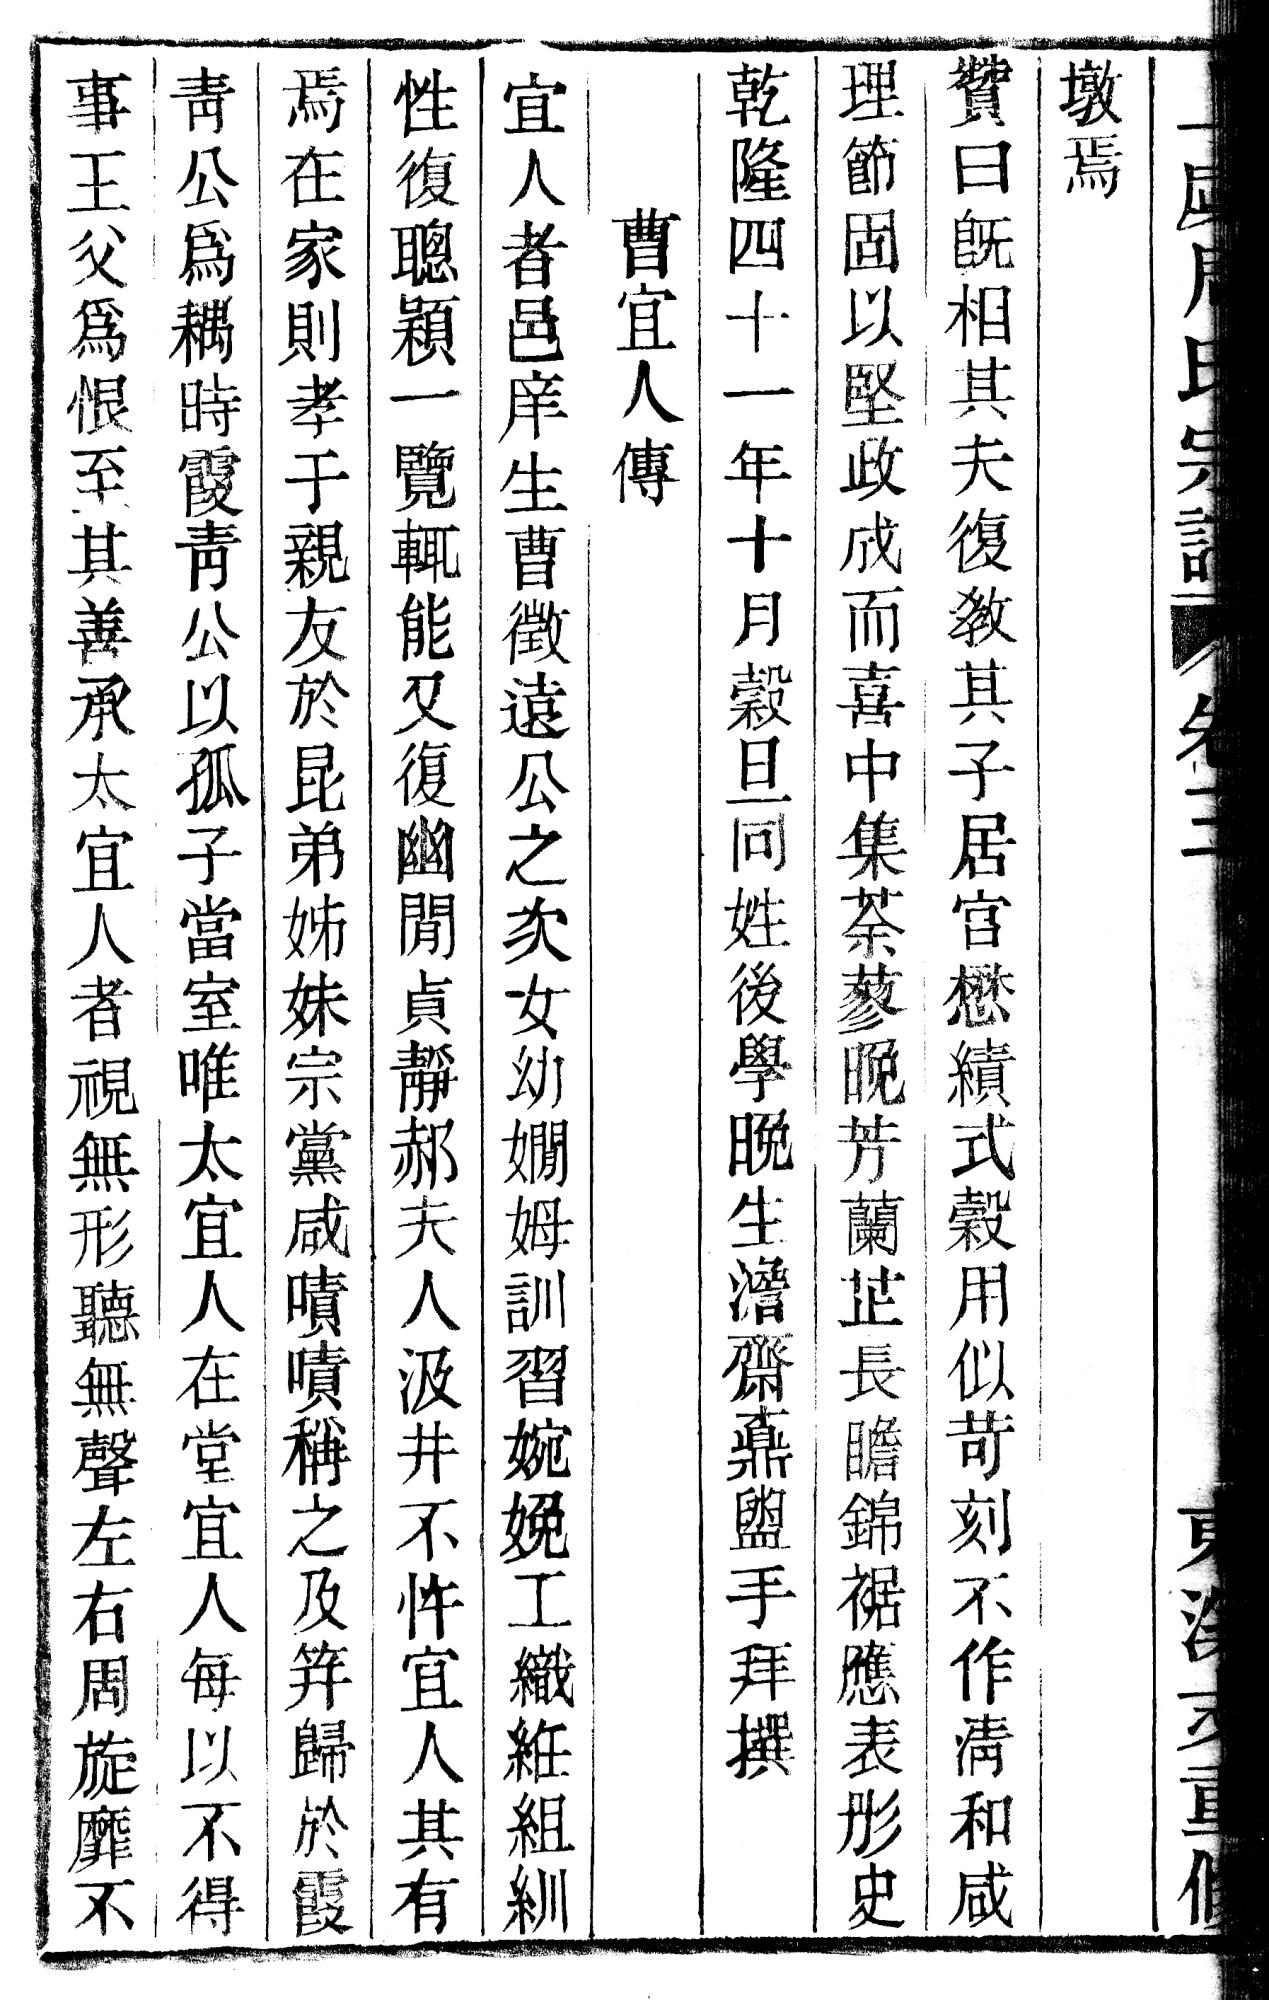 周氏宗譜 卷三 重修
墩焉
贊曰既相其夫復教其子居官懋績式穀用似苛刻不作清和咸
理節固以堅政成而喜中集荼蓼晚芳蘭芷長瞻錦裾應表彤史
乾隆四十一年十月穀旦同姓後學晚生澹齋鼒盥手拜撰
曹宜人傳
宜人者邑庠生曹徵遠公之次女幼嫺姆訓習婉娩工織絍組紃
性復聰穎一覽輒能又復幽閒貞靜郝夫人汲井不忤宜人其有
焉在家則孝于親友於昆弟姊妹宗黨咸嘖嘖稱之及笄歸於霞
青公爲耦時霞青公以孤子當室唯太宜人在堂宜人每以不得
事王父爲恨至其善承太宜人者視無形聽無聲左右周旋靡不